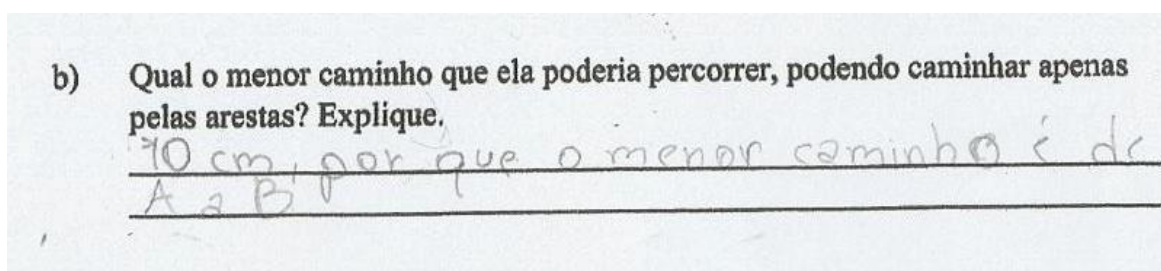 b) Qual o menor caminho que ela poderia percorrer, podendo caminhar apenas
pelas arestas? Explique.
70 cm, por que o menor caminho é de
A a B